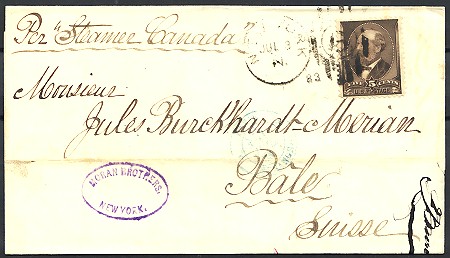 Per "Steamer Canada"
NEW YORK
JUL 3
83
5 CENTS
U.S. POSTAGE
Monsieur
Jules Burckhardt-Merian
Bâle
Suisse
MORAN BROTHERS,
NEW YORK.